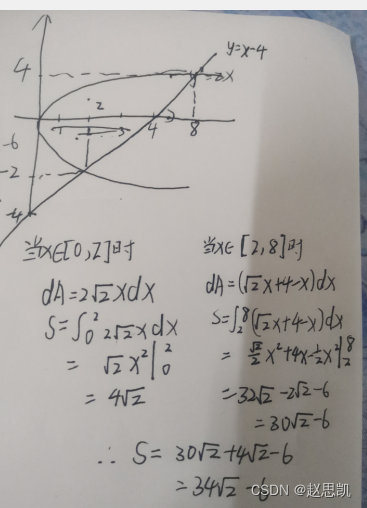 y=x-4
4
=2x
2
4
8
-6
-2
-4
当x∈[0,2]时
dA=2√2xdx
S=∫₀² 2√2x dx
= √2 x²|₀²
= 4√2
当x∈[2,8]时
dA=(√2x+4-x)dx
S=∫₂⁸(√2x+4-x)dx
= √2/2 x²+4x-1/2x²|₂⁸
=32√2-2√2-6
=30√2-6
∴ S= 30√2+4√2-6
=34√2-6
CSDN @赵思凯